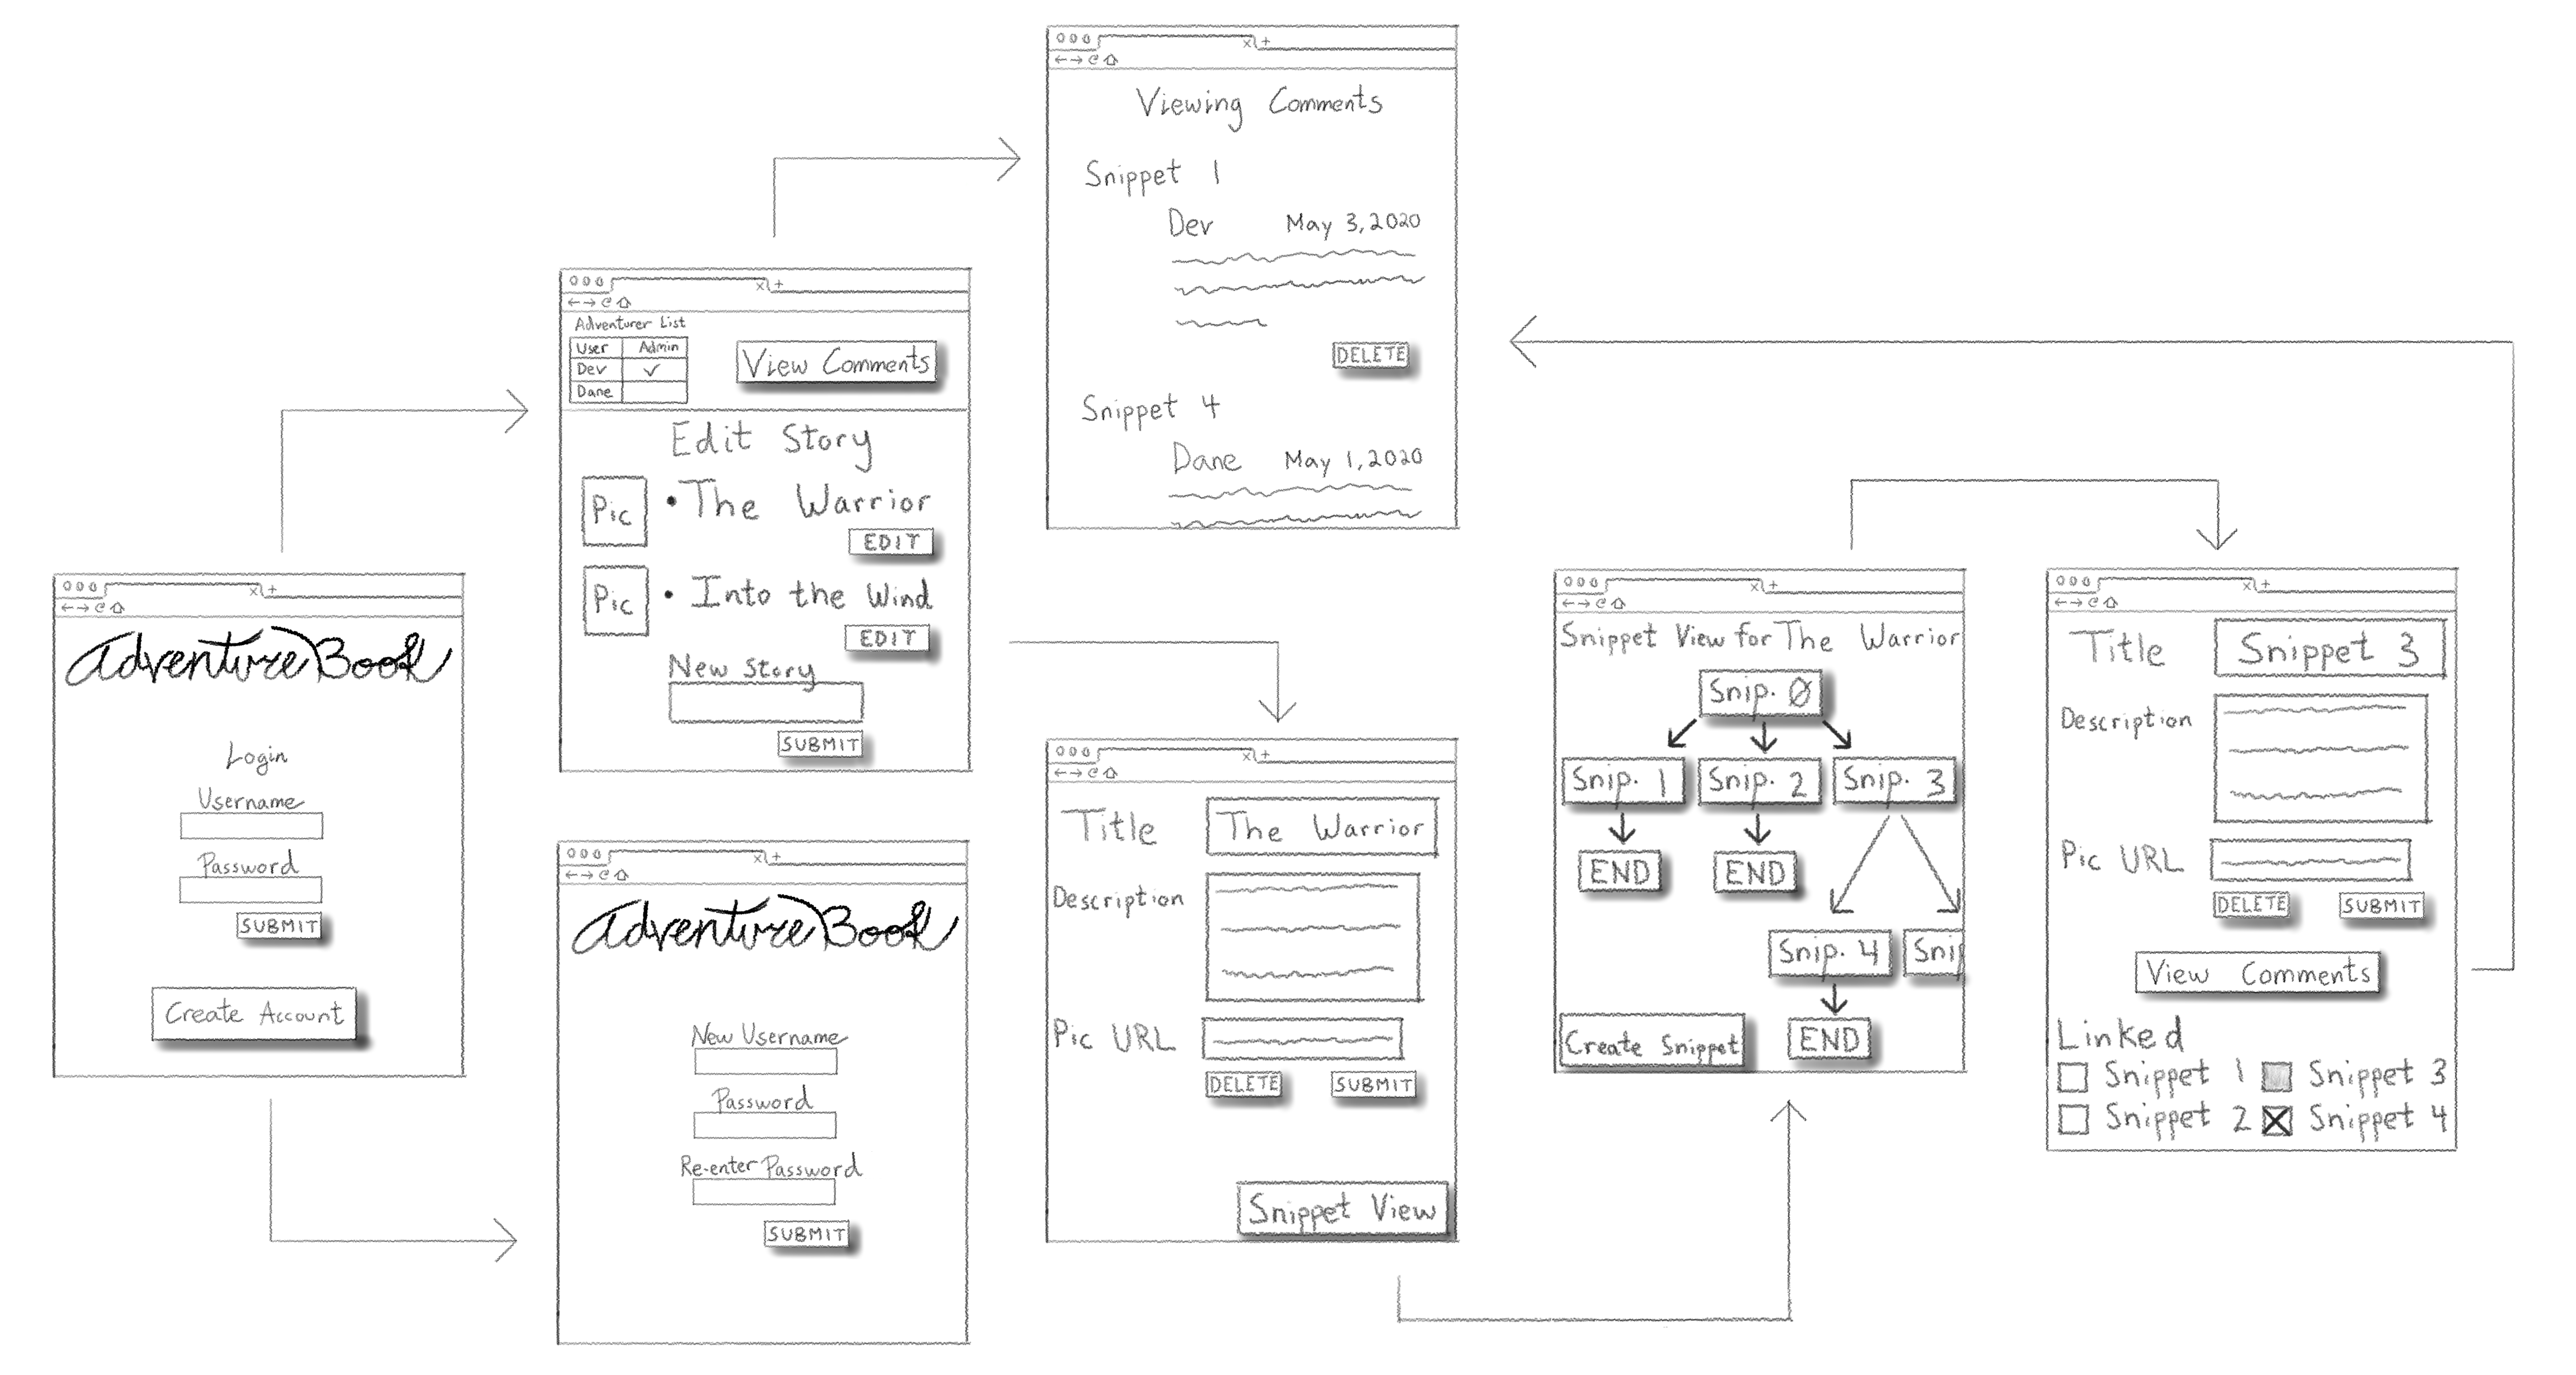 Adventure Book
Login
Username
Password
SUBMIT
Create Account
Adventurer List
User Admin
Dev ✓
Dane
View Comments
Edit Story
Pic • The Warrior
EDIT
Pic • Into the Wind
EDIT
New Story
SUBMIT
Adventure Book
New Username
Password
Re-enter Password
SUBMIT
Viewing Comments
Snippet 1
Dev May 3, 2020
DELETE
Snippet 4
Dane May 1, 2020
Title The Warrior
Description
Pic URL
DELETE SUBMIT
Snippet View
Snippet View for The Warrior
Snip. Ø
Snip. 1 Snip. 2 Snip. 3
END END
Snip. 4 Snip
Create Snippet END
Title Snippet 3
Description
Pic URL
DELETE SUBMIT
View Comments
Linked
Snippet 1 Snippet 3
Snippet 2 Snippet 4